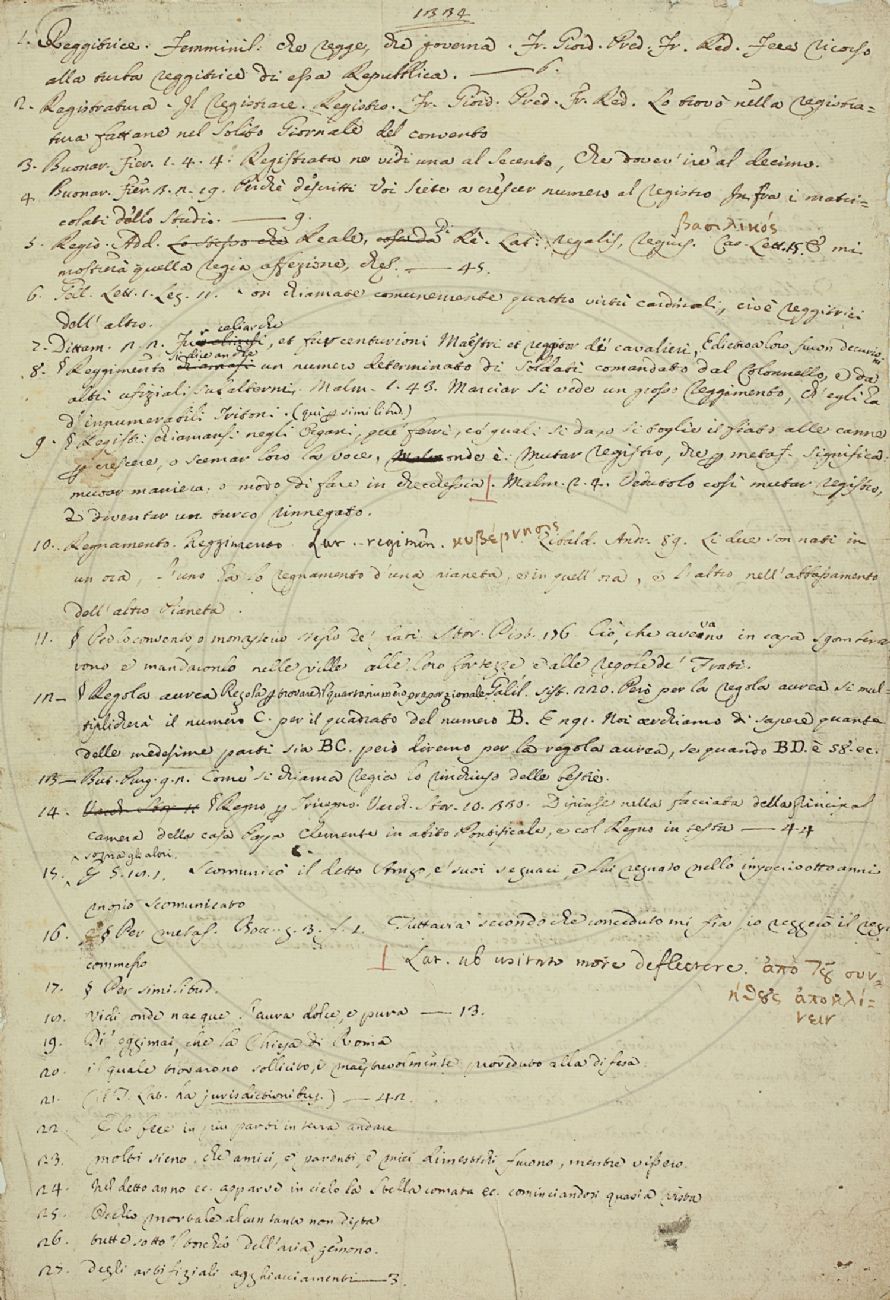 1334
1. Reggitrice. Femminil. che regge, che governa. Fr. Giord. Pred. Fr. Red. Fece ricorso
alla turba reggitrice di essa Repubblica. — 6.
2. Registratura. Il registrare. Registro. Fr. Giord. Pred. Fr. Red. Lo trovò nella registra=
tura fattane nel solito Giornale del convento
3. Buonar. Fier. 1. 4. 4. Registrata ne vidi una al secento, Che dover' ire al decimo.
4. Buonar. Fier. 2. 2. 19. Perchè descritti Voi siete a crescer numero al registro Infra i matri=
colati dello studio. — 9.
5. Regio. Add. Lo stesso che Reale, di Re. Lat. regalis, regius. βασιλικός Cas. Lett. 15. E mi
mostrerà quella regia affezione, che. — 45.
6. Lett. 1. Leg. 11. Son chiamate comunemente quattro virtù cardinali, cioè reggitrici
dell' altre.
7. Dittam. 2. 2. et fur centurioni Maestri et rettor de' cavalieri, E dietro a loro furon decurioni
8. § Reggimento si dice anche un numero determinato di soldati comandato dal Colonnello, e da
altri ufiziali subalterni. Malm. 1. 43. Marciar si vede un grosso Reggimento, Ch' egli ha
d'innumerabili Tritoni. (qui p similitud.)
9. § Registri chiamansi negli Organi, que' ferri, co' quali si dà, o si toglie il fiato alle canne
p crescere, o scemar loro la voce, onde è: Mutar registro, che p metaf. significa:
mutar maniera, o modo di fare in checchessia. Malm. 2. 7. Vedutolo così mutar registro,
E diventar un turco rinnegato.
10. Regnamento. Reggimento. Lat. regimen. κυβέρνησις. Zibald. Andr. 89. Li due son nati in
un' ora, l'uno ha lo regnamento d'una pianeta, e in quell' ora, e l'altro nell' abbassamento
dell' altro Pianeta.
11. § Per lo convento, o monastero stesso de' frati. Stor. Pist. 176. Ciò, che aveano in casa sgombra=
rono e mandaronlo nelle ville alle loro fortezze e alle regole de' Frati.
12. § Regola aurea Regola p trovare il quarto numero proporzionale. Galil. Sist. 220. Però per la regola aurea si mul=
tiplicherà il numero C. per il quadrato del numero B. E 291. Noi cerchiamo di sapere quante
delle medesime parti sia BC. però diremo per la regola aurea, se quando BD. è 58. ec.
13. But. Purg. 9. 2. Come si chiama regia lo rinchiuso delle bestie.
14. § Regno p Triregno. Vasar. Stor. 10. 330. Dipinse nella facciata della principal
camera della casa Papa Clemente in abito Pontificale, e col Regno in testa — 44
sopra gli altri.
15. G. S. 10. 1. Scomunicò il detto Arrigo, e' suoi seguaci, e lui regnato nello imperio otto anni
morìo scomunicato
16. § Per metaf. Bocc. g. 3. f. 1. Tuttavia secondo che conceduto mi fia io reggerò il regno
commesso
⊥ Lat. ab usitato more deflectere. ἀπὸ τοῦ συν=
ήθους ἀποκλί=
νειν
17. § Per similitud.
18. Vidi onde nacque l'aura dolce, e pura — 13.
19. Dì oggimai, che la Chiesa di Roma
20. il quale trovarono sollicito, e maestrevolmente proveduto alla difesa
21. (il T. Lat. ha jurisdictionibus.) — 42.
22. E lo fece in più parti in terra andare
23. molti sieno, che amici, e parenti, e miei dimestichi furono, mentre vissero.
24. Nel detto anno ec. apparve in cielo la stella comata ec. cominciandosi quasi a vista
25. Occhio mortale alcun tanto non dista
26. tutte sotto 'l torchio dell' aria gemono.
27. Degli artifiziali agghiacciamenti — 3.